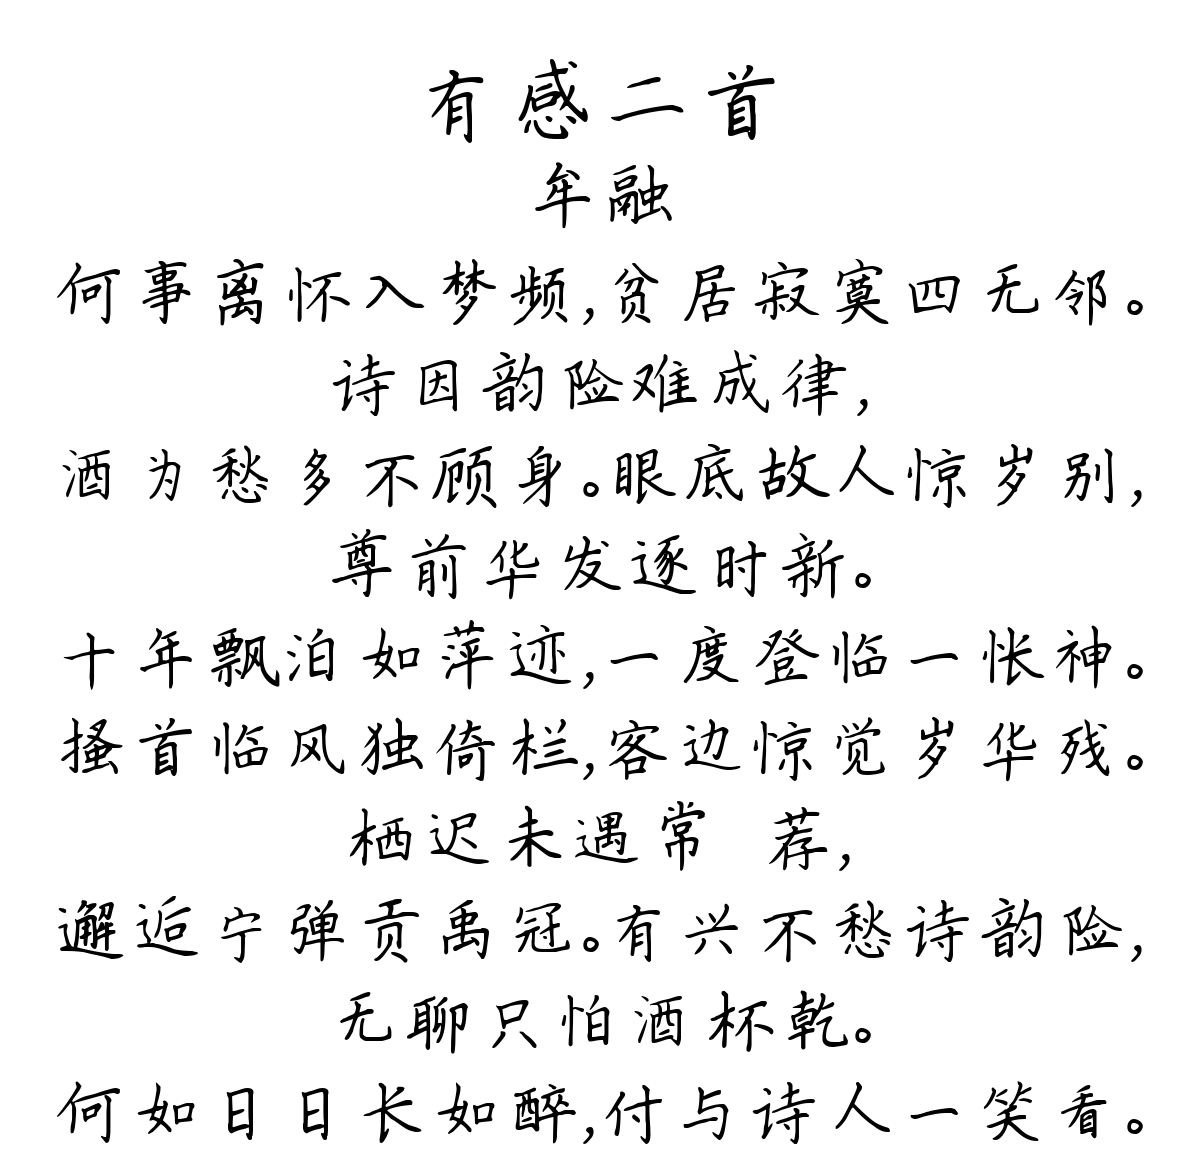 有感二首
牟融
何事离怀入梦频,贫居寂寞四无邻。
诗因韵险难成律,
酒为愁多不顾身。眼底故人惊岁别,
尊前华发逐时新。
十年飘泊如萍迹,一度登临一怅神。
搔首临风独倚栏,客边惊觉岁华残。
栖迟未遇常 荐,
邂逅宁弹贡禹冠。有兴不愁诗韵险,
无聊只怕酒杯乾。
何如日日长如醉,付与诗人一笑看。